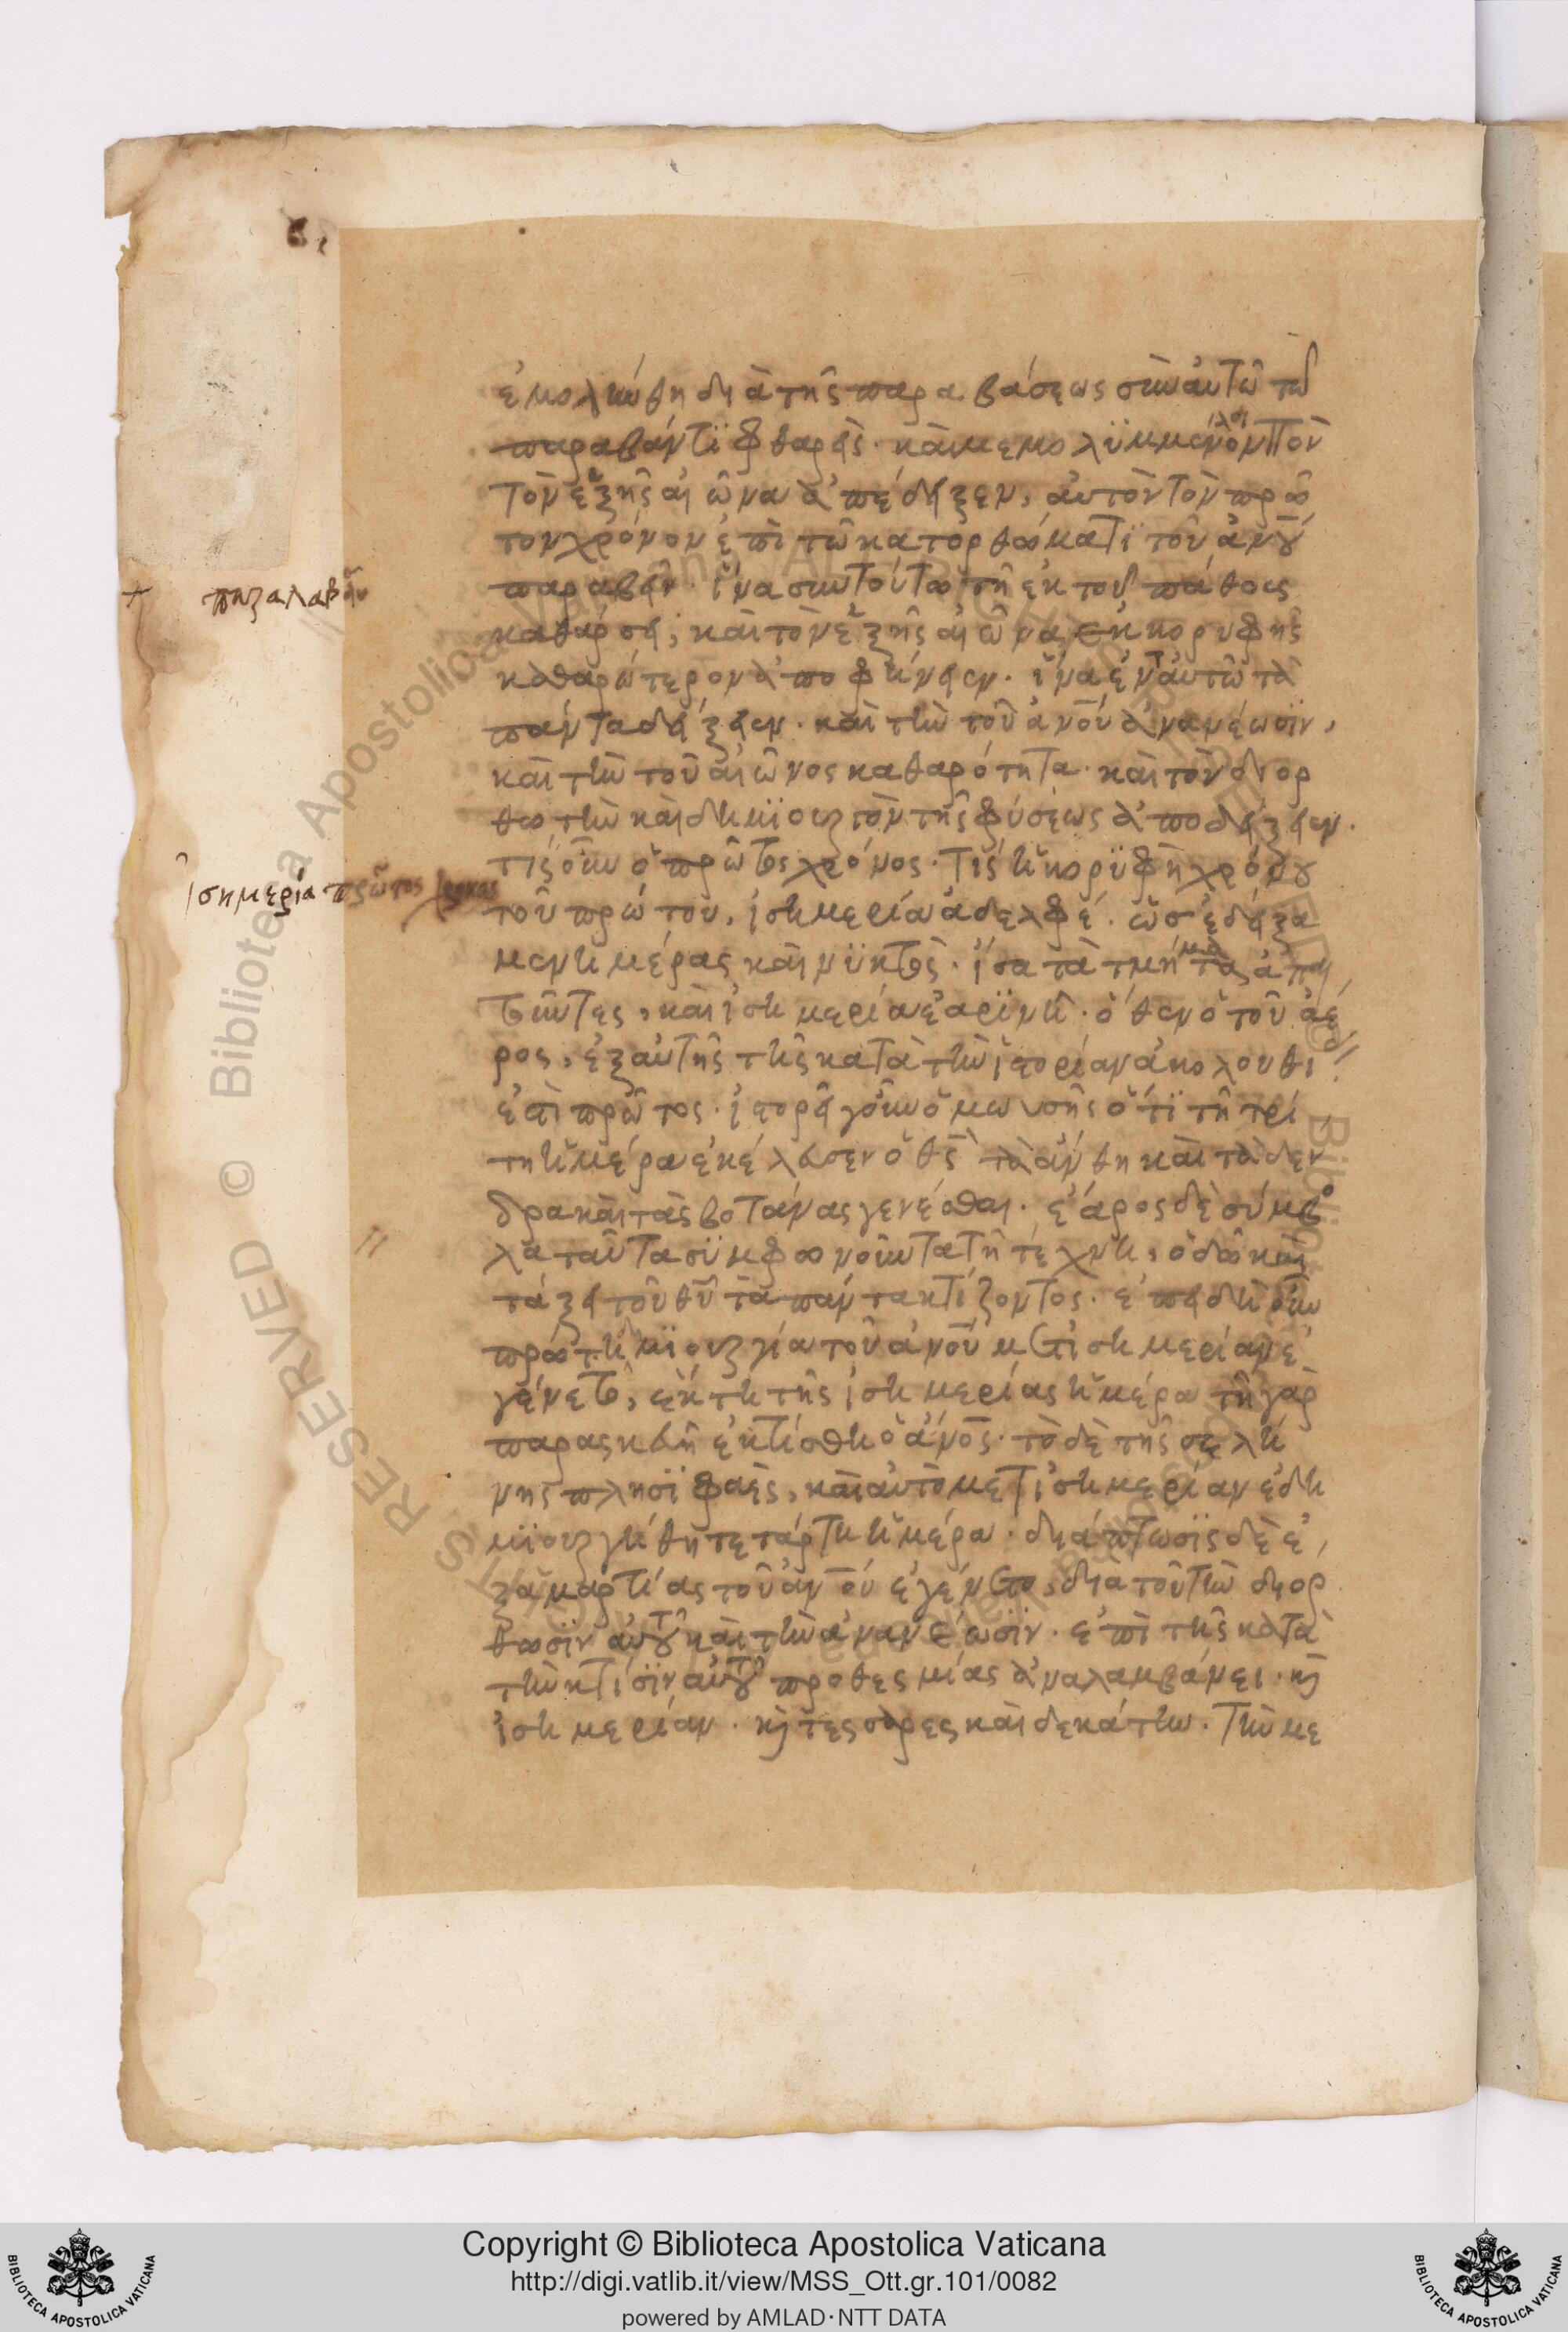 ἐμολύνθη διὰ τῆς παραβάσεως σὺν αὐτῷ τῷ
παραβάντϊ φθαρεὶς. καὶ μεμολϋμμένον
τὸν ἑξῆς αἰῶνα ἀπέδειξεν, αὐτὸν τὸν πρῶ
τον χρόνον ἐπὶ τῷ κατορθώματϊ τοῦ ἀνου
παραβεῖν. ἵνα σὺν τούτω τῇ ἐκ τοῦ πάθους
καθάρσει, καὶ τὸν ἑξῆς αἰῶνα ἐκ κορυφῆς
καθαρώτερον ἀποφήνειεν. ἵνα ἐν ταυτῶ τὰ
πάντα δείξειεν. καὶ τὴν τοῦ ἀνοῦ ἀνανέωσϊν,
καὶ τὴν τοῦ αἰῶνος καθαρότητα. καὶ τὸν διορ
θωτὴν καὶ δημϊουργὸν τῆς φύσεως ἀποδείξειεν.
τίς οὖν ὁ πρῶτος χρόνος. τίς ἡ κορϋφὴ χρόνου
τοῦ πρώτου, ἰσημερία ἀδελφέ. ὡς ἐδείξα
μεν ἡμέρας καὶ νϋκτὸς. ἴσα τὰ τμήματα ἀπαι
τοῦντες, καὶ ἰσημερία ἐαρϊνὴ. ὅθεν ὁ τοῦ ἀέ
ρος, ἐξ αὐτῆς τῆς κατὰ τὴν ἱστορίαν ἀκολουθι
ἐστι πρῶτος. ἱστορεῖ γοῦν ὁ μωυσῆς ὅτϊ τῇ τρί
τη ἡμέρα ἐκέλευσεν ὁ θς τὰ ἄνθη καὶ τὰ δεν
δρα καὶ τὰς βοτάνας γενέσθαι. ἐάρος δὲ σύμβο
λα ταῦτα σϋμφωνοῦντα τῇ τέχνη, ὁδῶ καὶ
τάξει τοῦ θῦ τὰ πάντα κτίζοντος. ἐπειδὴ οὖν
πρώτη δημϊουργία τοῦ ἀνοῦ μετ ἰσημερίαν ἐ
γένετο, ἕκτη τῆς ἰσημερίας ἡμέρα τῇ γὰρ
παρασκευῆ ἐκτίσθη ὁ ἀνος. τὸ δὲ τῆς σελή
νης πλησϊφαὲς, καὶ αὐτὸ μετ ἰσημερίαν ἐδη
μϊουργήθη τετάρτη ἡμέρα. διάπτωσϊς δὲ ἐ
ξ ἁμαρτίας τοῦ ἀνοῦ ἐγένετο, διατοῦ τὴν διορ
θωσϊν αὐτοῦ καὶ τὴν ἀνανέωσϊν. ἐπὶ τῆς κατὰ
τὴν κτίσϊν αὐτοῦ προθεσμίας ἀναλαμβάνει. κ
ἰσημερίαν. κ τεσσαρες και δεκάτην. τὴν με
παραλαβεῖν
Ἰσημερία πρῶτος χρόνος
Copyright © Biblioteca Apostolica Vaticana
http://digi.vatlib.it/view/MSS_Ott.gr.101/0082
powered by AMLAD·NTT DATA
BIBLIOTECA APOSTOLICA VATICANA
BIBLIOTECA APOSTOLICA VATICANA